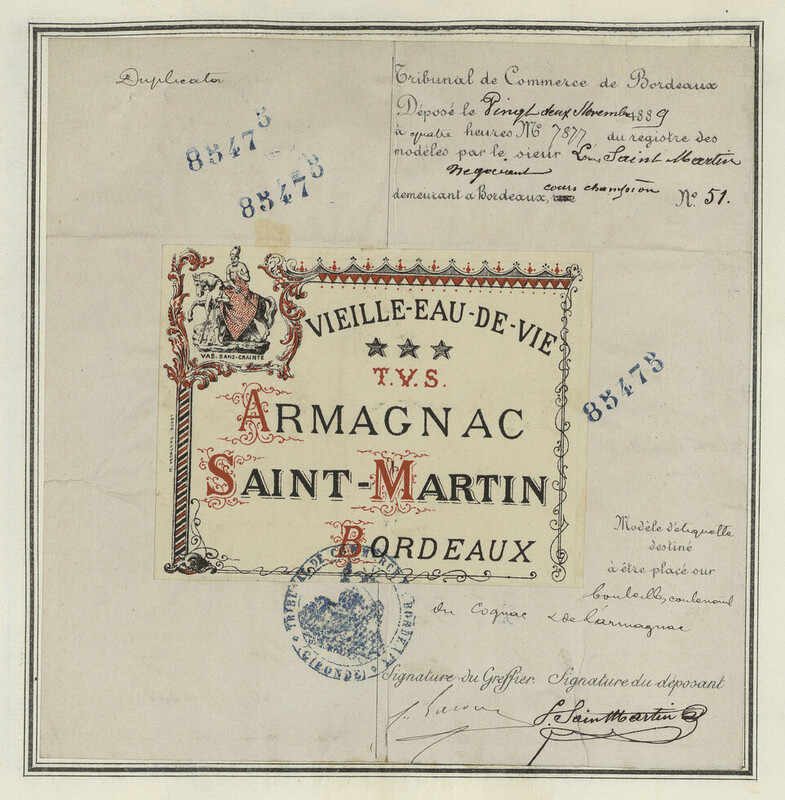 Duplicata
Tribunal de Commerce de Bordeaux
Déposé le Vingt deux Novembre 1889
à quatre heures No 7877 du registre des
modèles par le sieur Louis Saint Martin
négociant
demeurant à Bordeaux, cours champion No. 51.
85475
85475
VIEILLE-EAU-DE-VIE
VAS-SANS-CRAINTE
T.V.S.
85475
ARMAGNAC
SAINT-MARTIN
BORDEAUX
Modèle d'étiquette
destiné
à être placé sur
bouteilles, contenant
du Cognac & de l'armagnac
TRIBUNAL DE COMMERCE BORDEAUX
(GIRONDE)
Signature du Greffier. Signature du déposant
L. Saint Martin